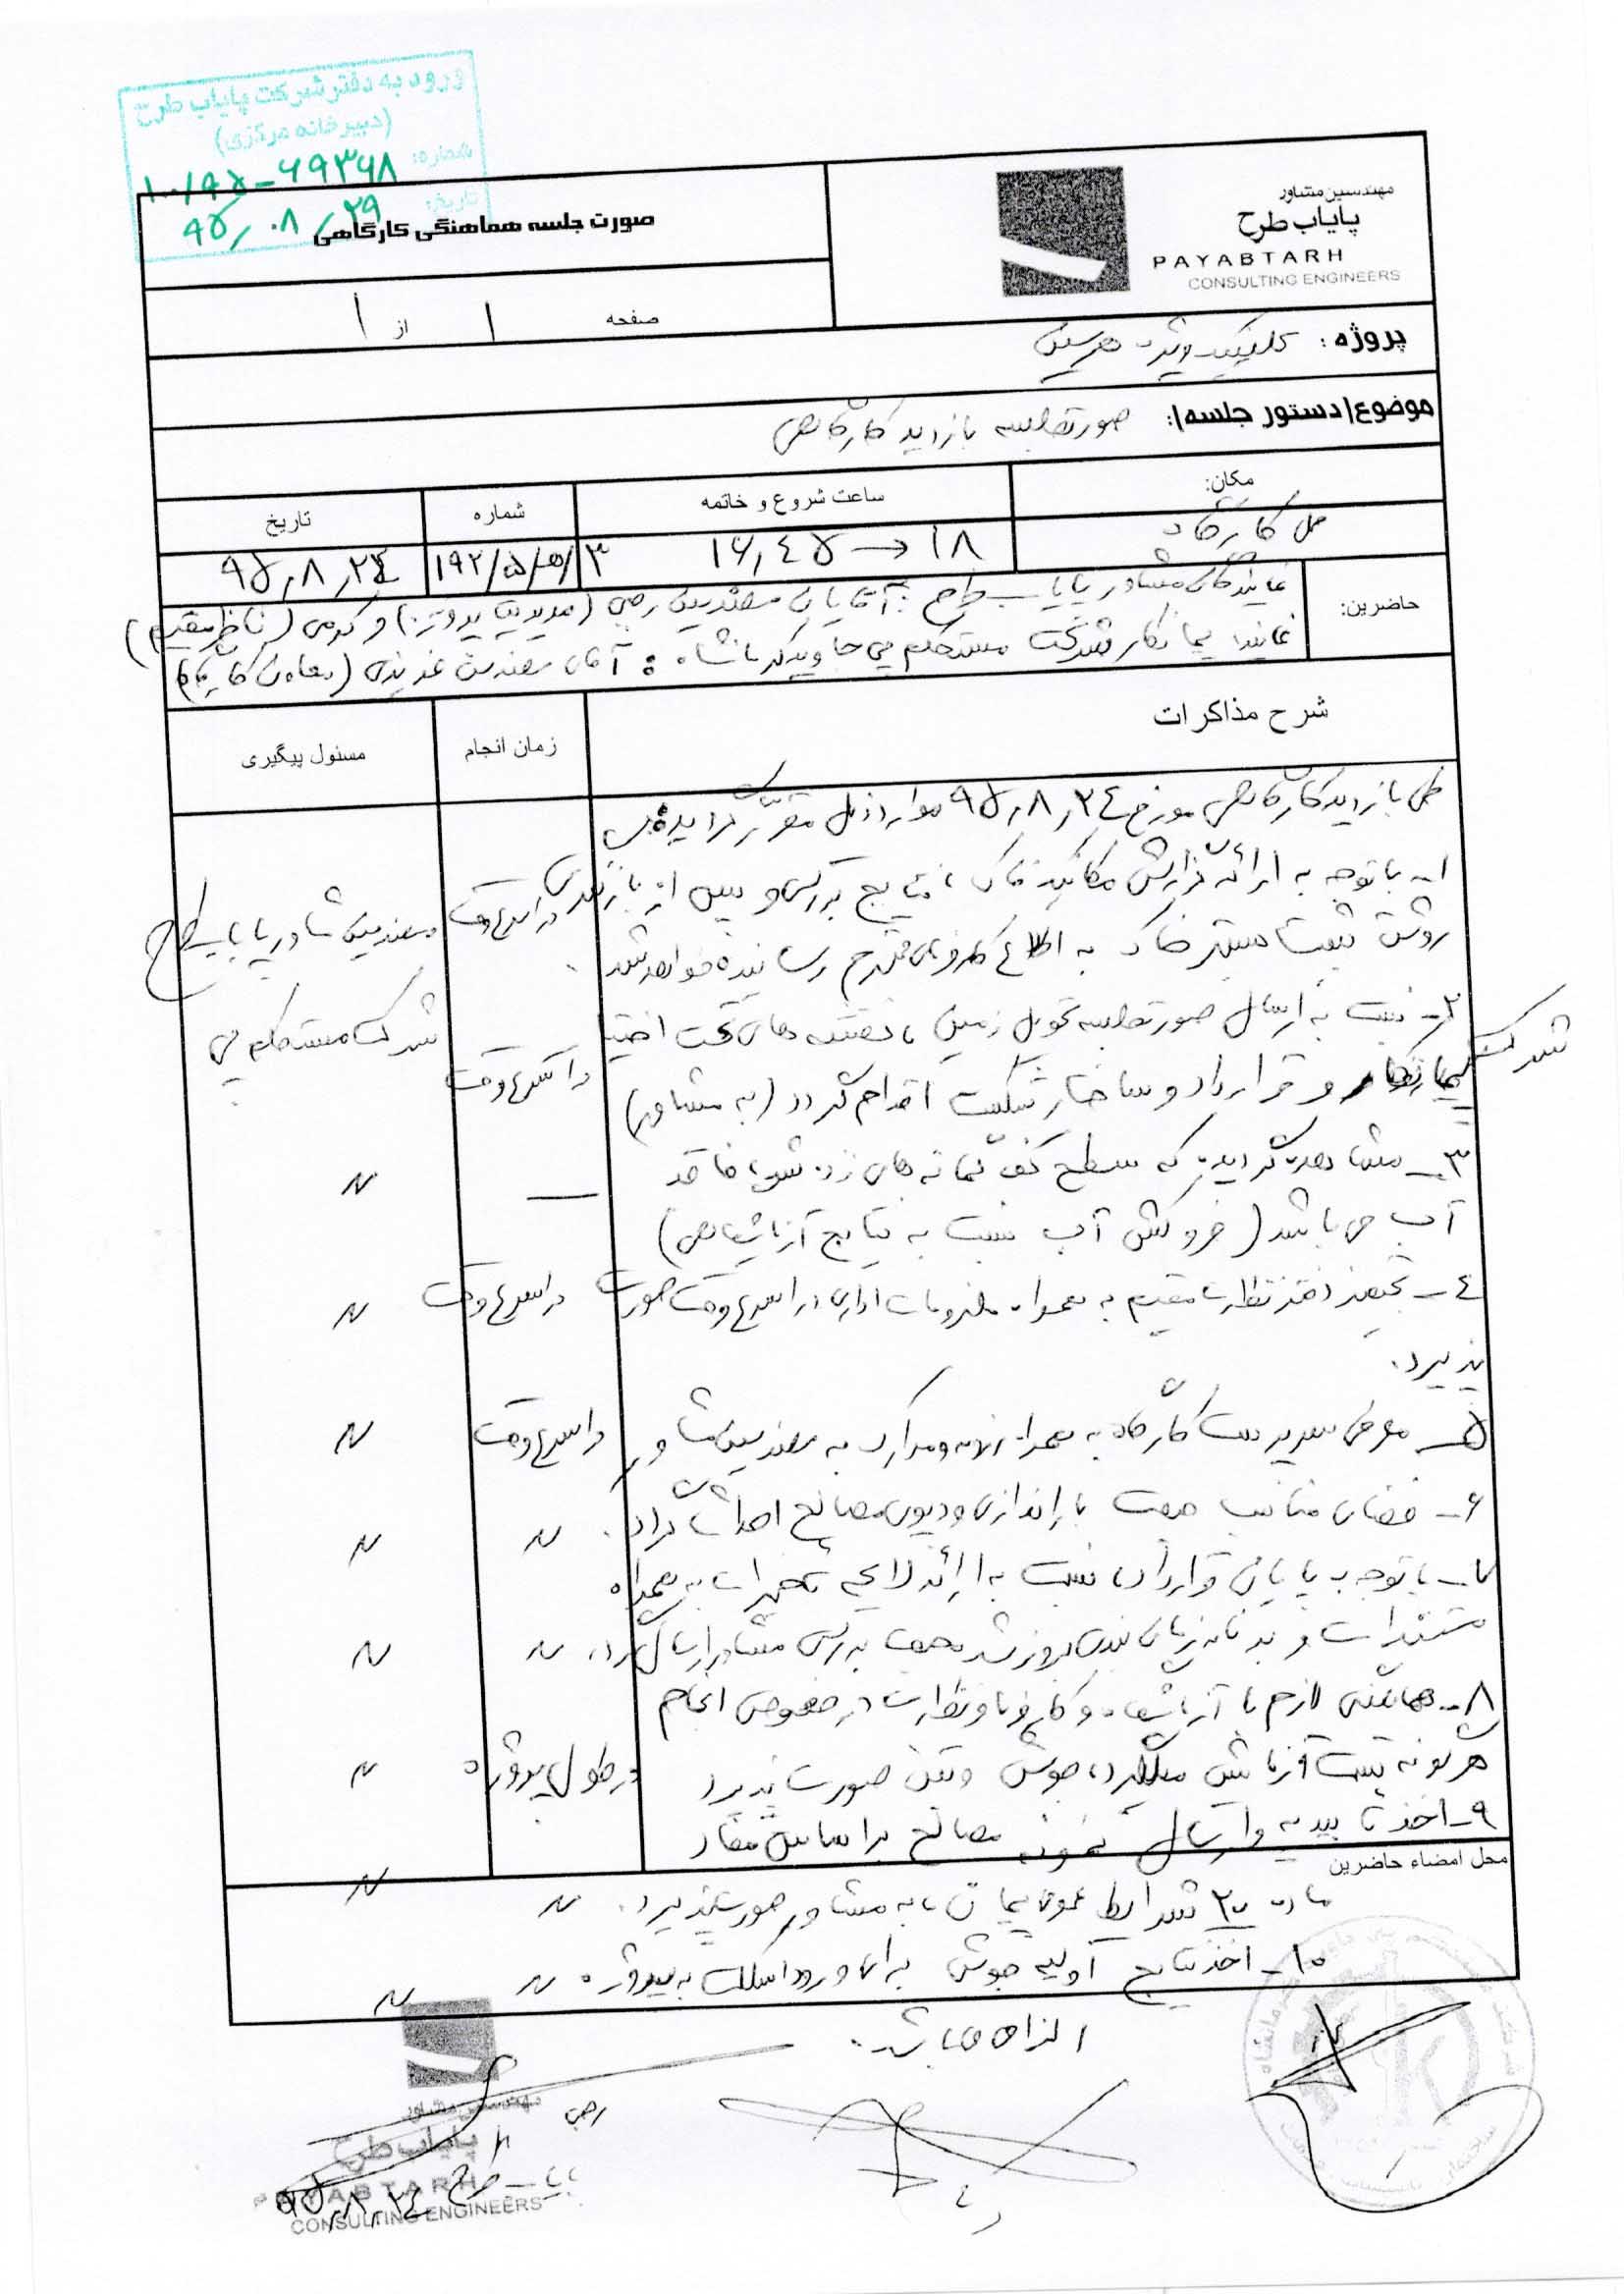 ورود به دفتر شرکت پایاب طرح
(دبیرخانه مرکزی)
شماره: ۱۰۰/۹۵-۶۹۳۶۸
تاریخ: ۹۵/۰۸/۲۹
مهندسین مشاور
پایاب طرح
PAYABTARH
CONSULTING ENGINEERS
صورت جلسه هماهنگی کارگاهی
صفحه ۱ از ۱
پروژه: کلینیک ویژه هرسین
موضوع/دستور جلسه/: صورتجلسه بازدید کارگاهی
مکان: ساعت شروع و خاتمه شماره تاریخ
محل کارگاه ۱۶,۴۵ → ۱۸ ۱۹۲/۵/ /۳ ۹۵,۸,۲۴
حاضرین: نمایندگان مشاور پایاب طرح: آقایان مهندسین رجبی (مدیریت پروژه) و کرمی (ناظر مقیم)
نماینده پیمانکار شرکت مستحکم پی جاوید کرمانشاه: آقای مهندس عزیزی (معاون کارگاه)
شرح مذاکرات زمان انجام مسئول پیگیری
طی بازدید کارگاهی مورخ ۹۵,۸,۲۴ موارد ذیل مقرر گردید:
۱- با توجه به ارائه گزارش مکانیک خاک، نتایج بررسی و پس از بازنگری در اسرع وقت مهندسین مشاور پایاب طرح
روش تثبیت بستر خاک به اطلاع کارفرمای محترم رسانیده خواهد شد.
۲- نسبت به ارسال صورتجلسه تحویل زمین، نقشه های تحت اختیار شرکت مستحکم پی
شرکت پیمانکار و قرارداد و ساختار شکست اقدام گردد (به مشاور) در اسرع وقت
۳- مشاهده گردید که سطح کف گمانه های زده شده فاقد — "
آب می باشد (فروکش آب نسبت به نتایج آزمایشگاهی)
۴- تجهیز دفتر نظارت مقیم به همراه ملزومات اداری در اسرع وقت صورت در اسرع وقت "
پذیرد.
۵- معرفی سرپرست کارگاه به همراه رزومه و مدارک به مهندسین مشاور در اسرع وقت "
۶- فضای مناسب جهت باراندازی و دپوی مصالح احداث گردد. " "
۷- با توجه به پایان قرارداد، نسبت به ارائه لایحه تاخیرات به همراه
مستندات و برنامه زمان بندی بروز شده جهت بررسی مشاور ارسال گردد. " "
۸- هماهنگی لازم با آزمایشگاه و کارفرما و نظارت در خصوص انجام
هرگونه تست آزمایش میلگرد، جوش و بتن صورت پذیرد در طول پروژه "
۹- اخذ تاییدیه و ارسال نمونه مصالح بر اساس مفاد
محل امضاء حاضرین
ماده ۲۰ شرایط عمومی پیمان، به مشاور صورت پذیرد. " "
۱۰- اخذ نتایج اولیه جوش برای ورود اسکلت به پروژه " "
الزامی می باشد.
رجبی
پایاب طرح
۹۵,۸,۲۴
مهندسین مشاور
پایاب طرح
PAYABTARH
CONSULTING ENGINEERS